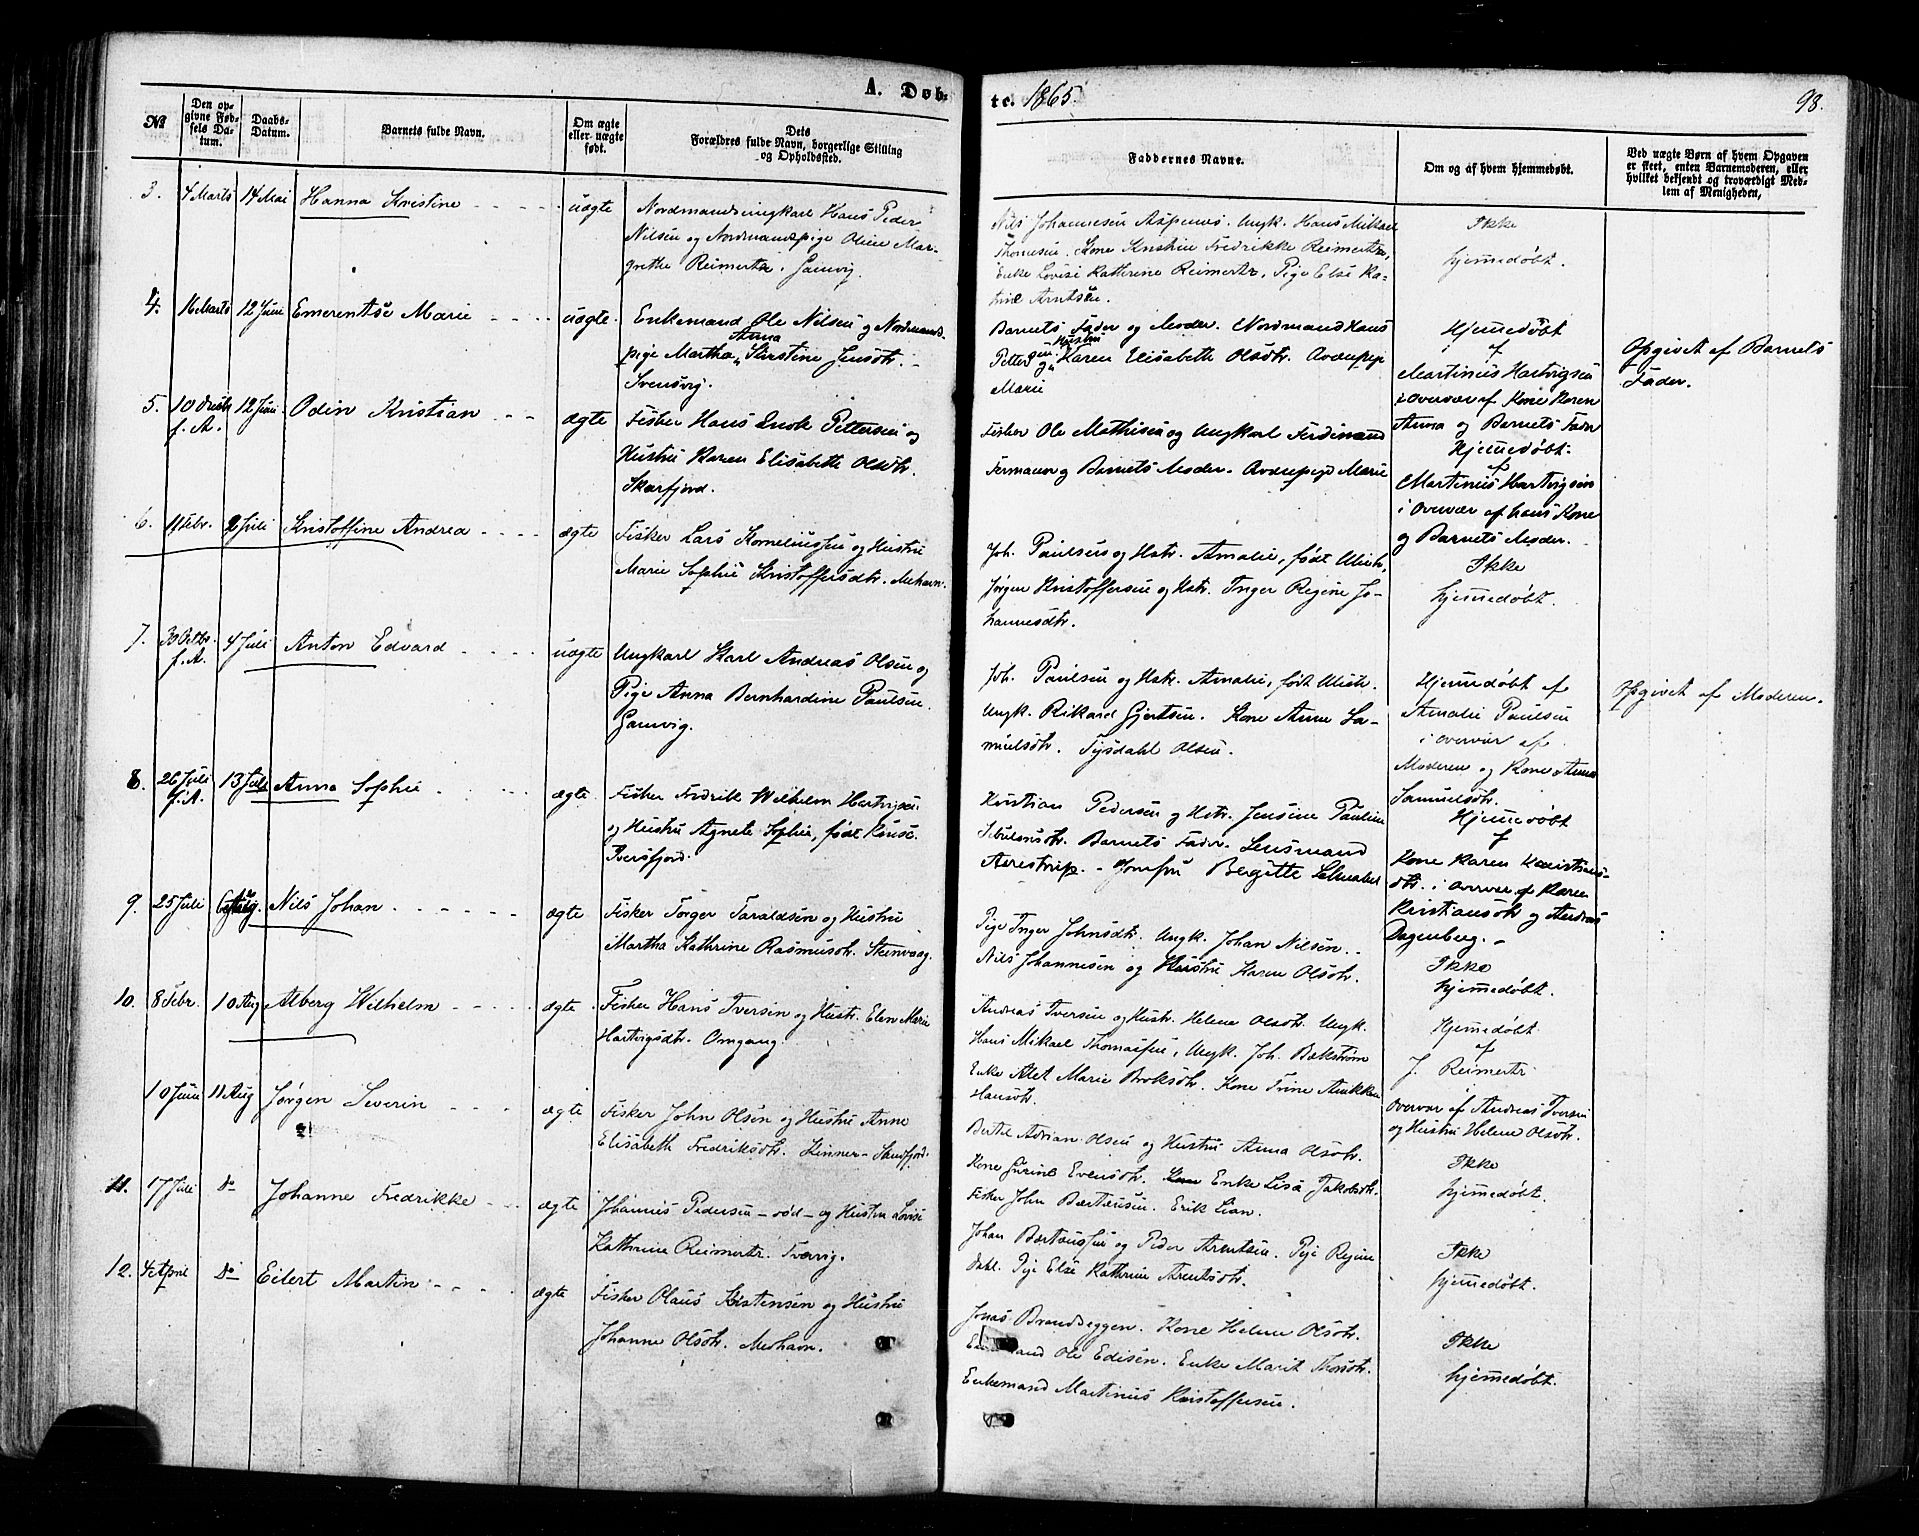 A. Døb-
te. 1865.
98.
No
Den op-
givne Fød-
sels Da-
tum.
Daabs-
Datum.
Barnets fulde Navn.
Om ægte
eller uægte
født.
Dets
Forældres fulde Navn, borgerlige Stilling
og Opholdssted.
Faddernes Navne.
Om og af hvem hjemmedøbt.
Ved uægte Børn af hvem Opgaven
er skeet, enten Barnemoderen, eller
hvilket bekjendt og troværdigt Med-
lem af Menigheden,
3. 4 Marts 14 Mai Hanna Kristine uægte
Nordmandsungkarl Hans Peder
Nilsen og Nordmandspige Oline Mar-
grethe Reimertz. Gamvig.
Nils Johannesen Aspenes. Ungk. Hans Mikael
Thomesen. Kone Kristine Fredrikke Reimertz,
Enke Lovise Kathrine Reimertz, Pige Else Ka-
trine Arntsen.
Ikke
hjemmedøbt.
4. 16 Marts 12 Juni Emerentse Marie uægte.
Enkemand Ole Nilsen og Nordmands-
pige Martha Anna Kirstine Jensdtr.
Svensvig.
Barnets Fader og Moder. Nordmand Hans
Pettersen og Hustru Karen Elisabeth Olsdtr.
Marie
Hjemmedøbt
af
Martinus Hartvigsen
i overvær af Kone Karen
Anna og Barnets Fader
Opgivet af Barnets
Fader.
5. 10 Decbr. f. A. 12 Juni Odin Kristian ægte
Fisker Hans Enok Pettersen og
Hustru Karen Elisabeth Olsdtr.
Skarfjord.
Fisker Ole Mathisen og Ungkarl Ferdinand
og Barnets Moder. Marie
Hjemmedøbt.
af
Martinus Hartvigsen
i overvær af hans Kone
og Barnets Moder.
6. 11 Febr. 2 Juli Kristoffine Andrea ægte
Fisker Lars Korneliussen og Hustru
Marie Sophie Kristoffersdtr. Mehavn.
Joh. Paulsen og Hstr. Amalie, født Ulich,
Jørgen Kristoffersen og Hstr. Inger Regine Jo-
hannesdtr.
Ikke
hjemmedøbt.
7. 30 Octbr. f. A. 4 Juli Anton Edvard uægte
Ungkarl Karl Andreas Olsen og
Pige Anna Bernhardine Paulsen.
Gamvig.
Joh. Paulsen og Hstr. Amalie, født Ulich.
Ungk. Rikard Gjertsen. Kone Anne Sa-
muelsdtr. Tysdahl Olsen.
Hjemmedøbt af
Amalie Paulsen
i overvær af
Moderen og Kone Anna
Samuelsdtr.
Opgivet af Moderen.
8. 26 Juli f. A. 13 Juli Anna Sophie ægte.
Fisker Fredrik Wilhelm Hartvigsen
og Hustru Agnete Sophie, født
Iversfjord.
Kristian Pedersen og Hstr. Jensine Pauline
Barnets Fader. Lensmand
Aarestrup. Jomfru Bergitte
Hjemmedøbt
af
Kone Karen Kristians-
dtr. i overvær af Karen
Kristiansdtr og Andreas
Dagenberg.
9. 25 Juli 6 Aug. Nils Johan ægte
Fisker Torger Taraldsen og Hustru
Martha Kathrine Rasmusdtr. Stenvaag.
Pige Inger Johnsdtr. Ungk. Johan Nilsen.
Nils Johannesen og Hustru Karen Olsdtr.
Ikke
hjemmedøbt.
10. 8 Febr. 10 Aug Alberg Wilhelm ægte
Fisker Hans Iversen og Hustr. Elen Marie
Hartvigsdtr. Omgang.
Andreas Iversen og Hustr. Helene Olsdtr. Ungk.
Hans Mikael Thomassen, Ungk. Joh. Bækstrøm
Enke Alet Marie Broksdtr. Kone Trine Anikken
Hansdtr.
Hjemmedøbt
af
J. Reimertz
overvær af Andreas Iversen
og Hustru Helene Olsdtr.
10 Juni 11 Aug Jørgen Severin ægte
Fisker John Olsen og Hustru Anne
Elisabeth Fredriksdtr. Kinner-Sandfjord.
Bertil Adrian Olsen og Hustru Anna Olsdtr.
Kone Gurine Evensdtr. Enke Lisa Jakobsdtr.
Fisker John Bærtausen. Erik Lian.
Ikke
hjemmedøbt.
11. 17 Juli Do Johanne Fredrikke ægte
Johannes Pedersen -rød- og Hustru Lovise
Kathrine Reimertz. Tverrvig.
Johan Bærtaussen og Peder Arentsen. Pige Regine
Dahl. Pige Else Kathrine Arentsdtr.
Ikke
hjemmedøbt.
12. 4 April Do Eilert Martin ægte
Fisker Olaus Kristensen og Hustru
Johanne Olsdtr. Mehavn.
Jonas Brandseggen. Kone Helene Olsdtr.
Enkemand Ole Edisen. Enke Marit Thorsdtr.
Enkemand Martinus Kristoffersen.
Ikke
hjemmedøbt.